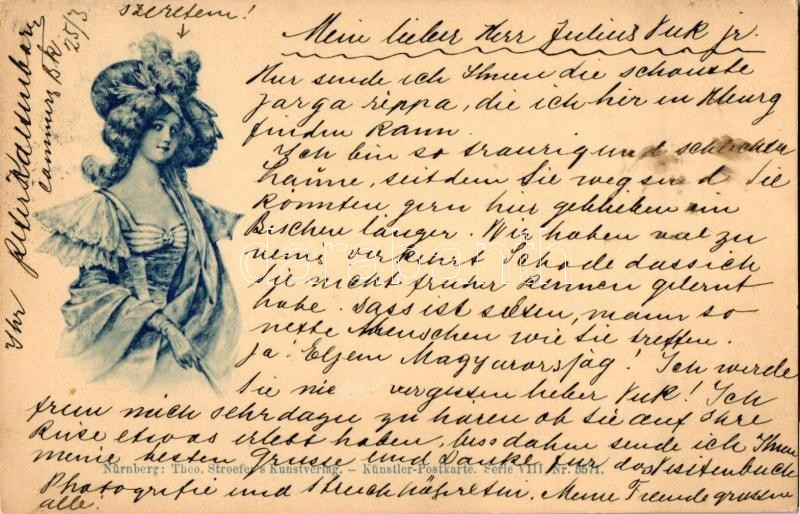 szeretem!
Mein lieber Herr Julius Vuk jr.
Hier sende ich Ihnen die schönste
zarga reppa, die ich hier in Hburg
finden kann.
Ich bin so traurig und schlechter
Laune, seitdem Sie weg sind Sie
konnten gern hier geblieben ein
Bischen länger. Wir haben viel zu
wenig verkehrt Schade dass ich
Sie nicht früher kennen gelernt
habe. Dass ist selten, mann so
nette Menschen wie Sie treffen.
Ja! Eljem Magyarorszag! Ich werde
Sie nie vergessen lieber Vuk! Ich
freue mich sehr dazu zu hören ob Sie auf Ihre
Reise etwas erlebt haben, biss dahin sende ich Ihnen
meine besten Grüsse und Danke für das Visitenbuch
Nürnberg: Theo. Stroefer's Kunstverlag. — Künstler-Postkarte. Serie VIII. Nr. 5571.
Photografie und Meine Freunde grüssen
alle.
Ihr
25/3
darabanth